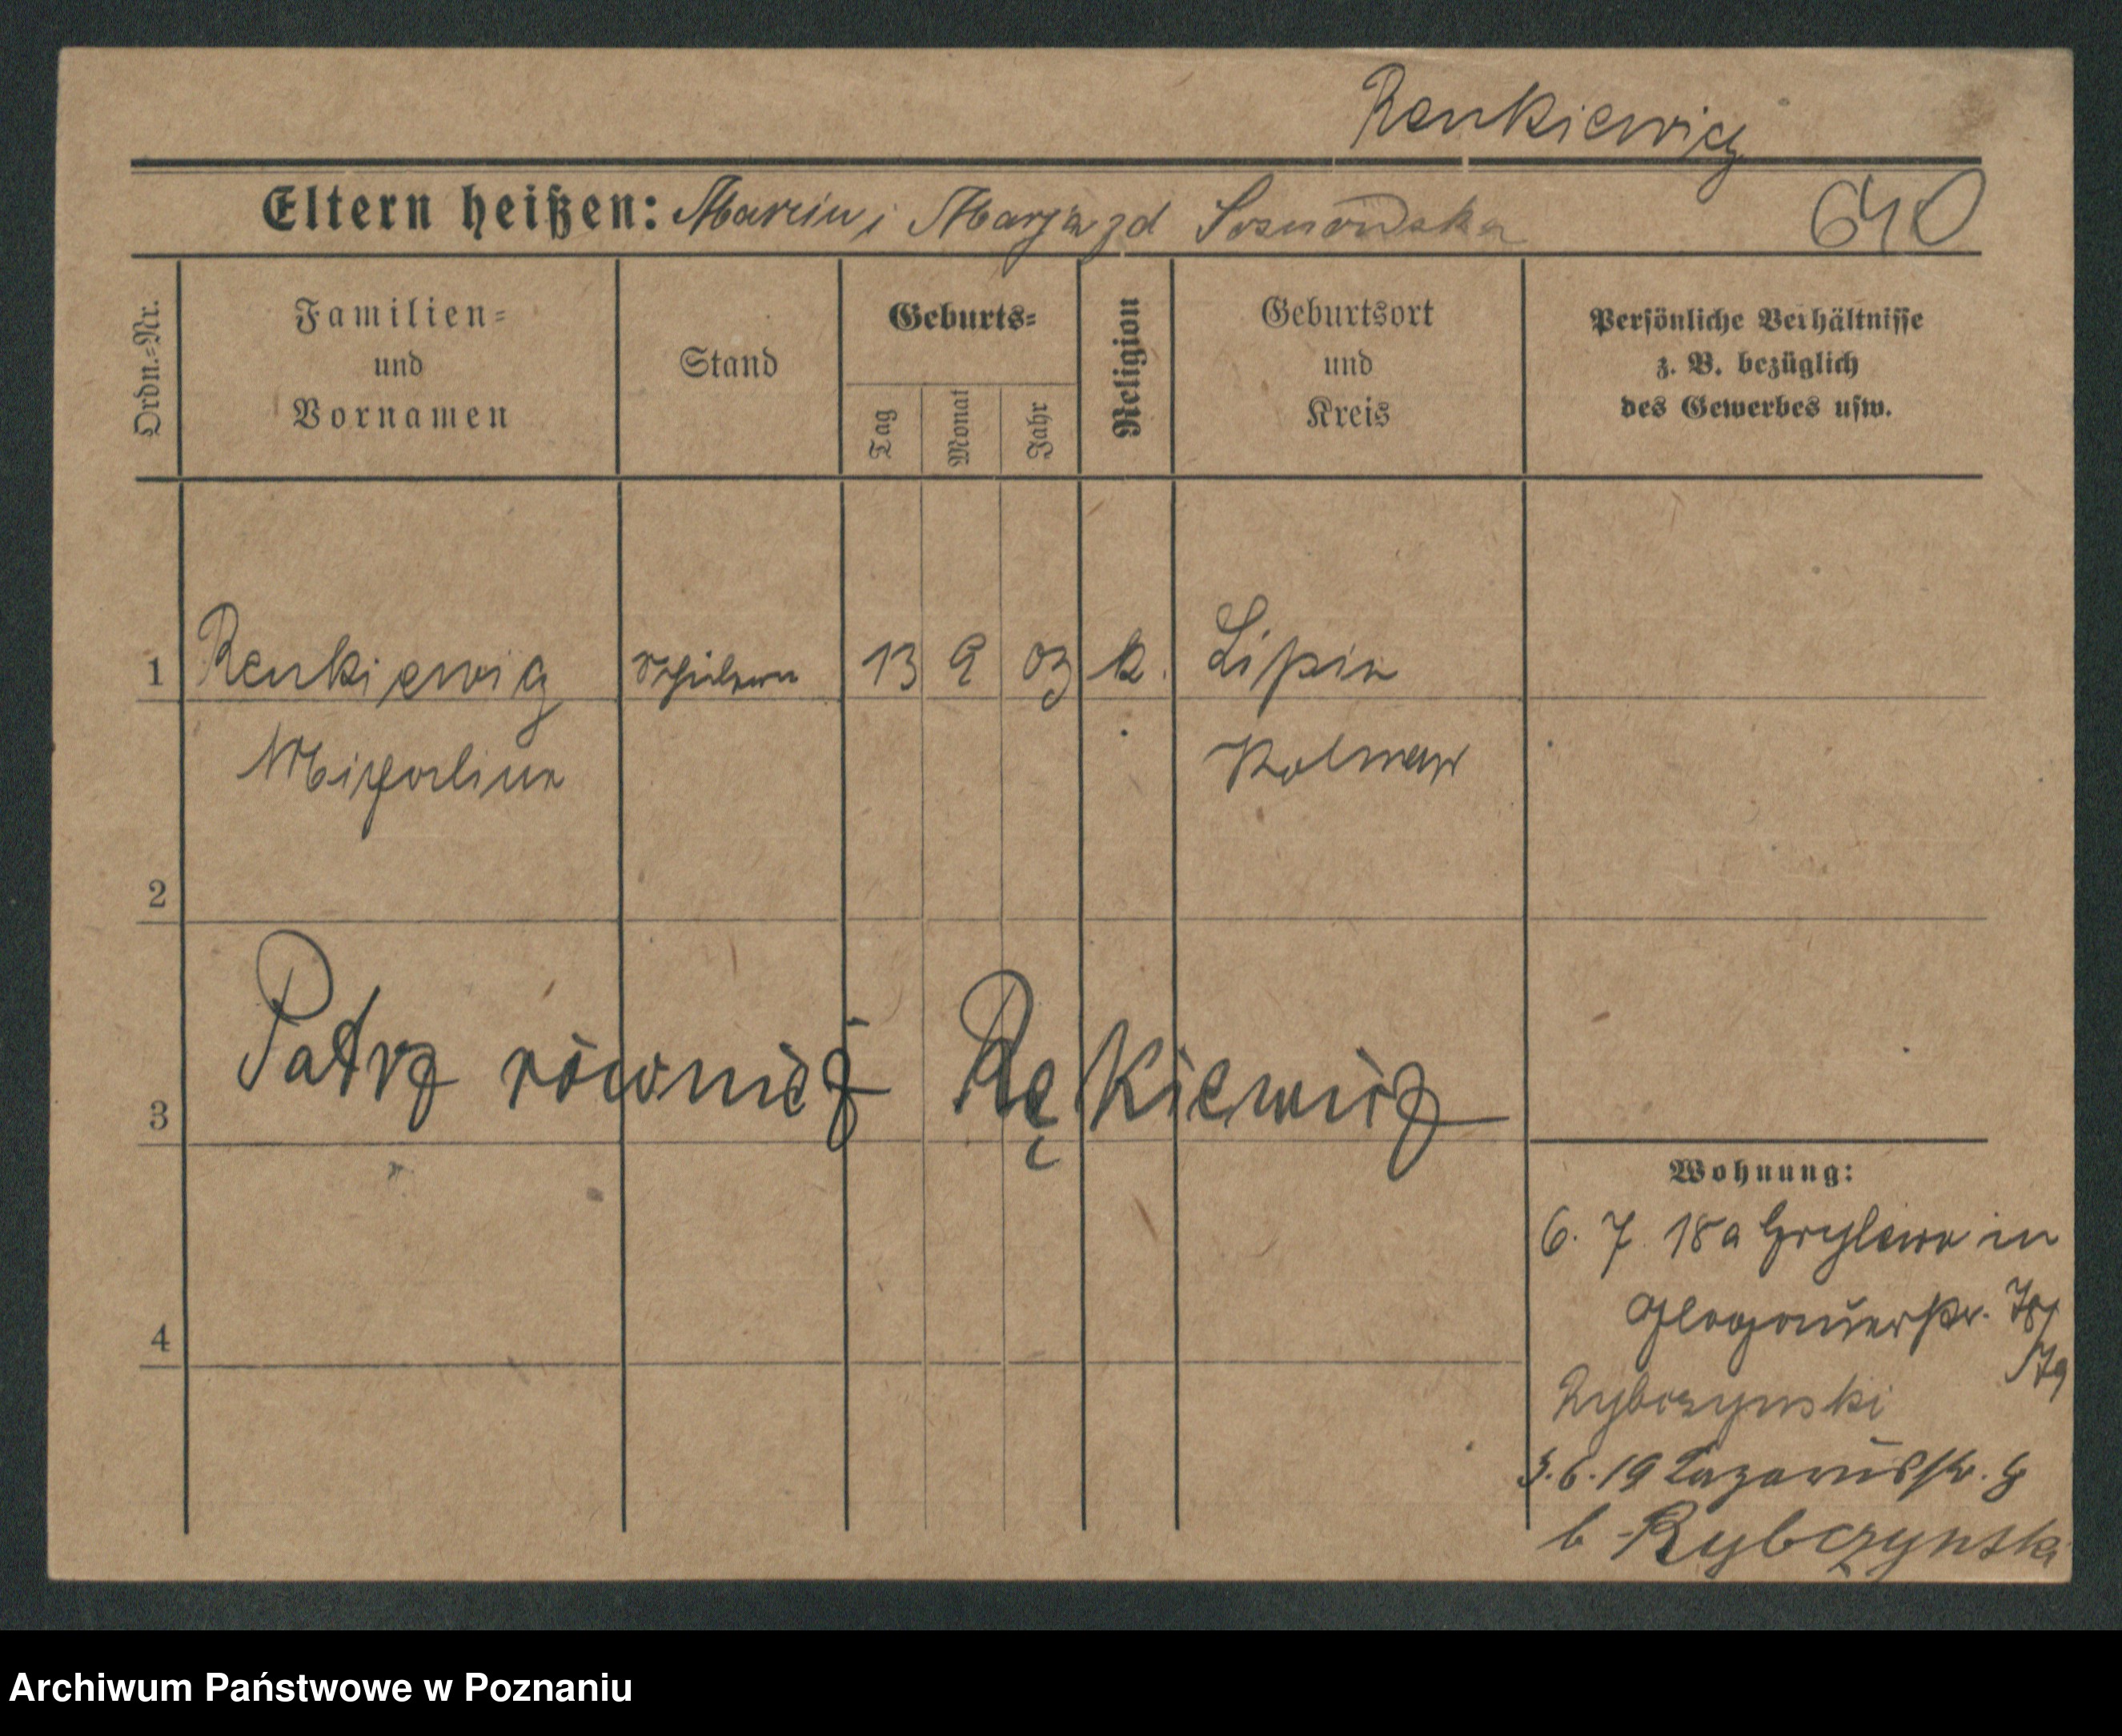 Renkiewicz
Eltern heißen: Marcin i Marja zd Sosnowska 640
Ordn.-Nr.
Familien-
und
Vornamen
Stand
Geburts-
Tag
Monat
Jahr
Religion
Geburtsort
und
Kreis
Persönliche Verhältnisse
z. B. bezüglich
des Gewerbes usw.
1 Renkiewicz Schülerin 13 9 03 k. Lipin
Kolmar
2
3 Patrz również Rękiewicz
Wohnung:
6. 7. 18 a Grylewo in
Glogauerstr. 78/
79
Rybczynski
3. 6. 19 Lazarusstr. 8
b Rybczynski
4
Archiwum Państwowe w Poznaniu